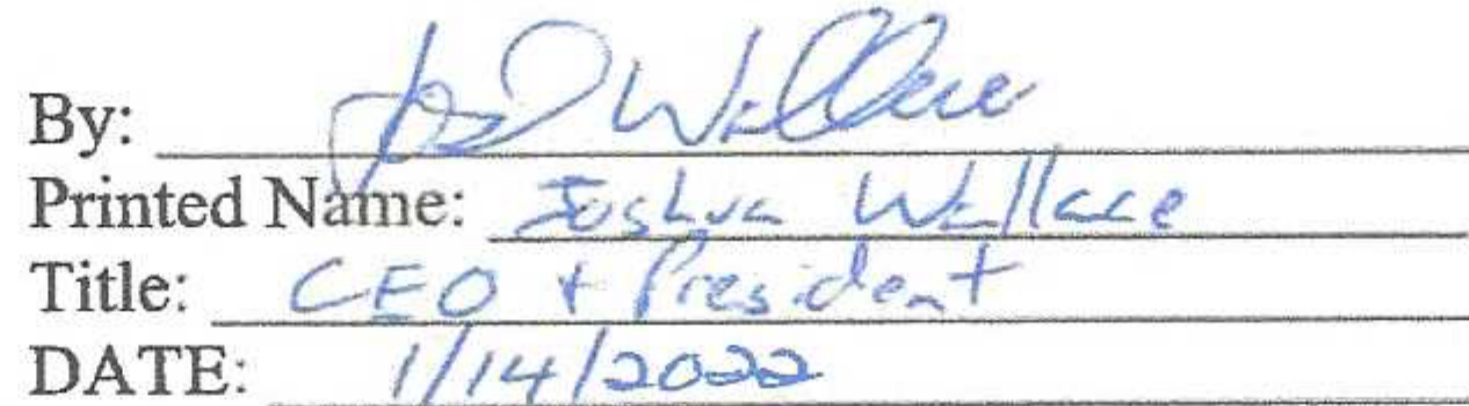 By: Jos Wallace
Printed Name: Joshua Wallace
Title: CEO + President
DATE: 1/14/2022